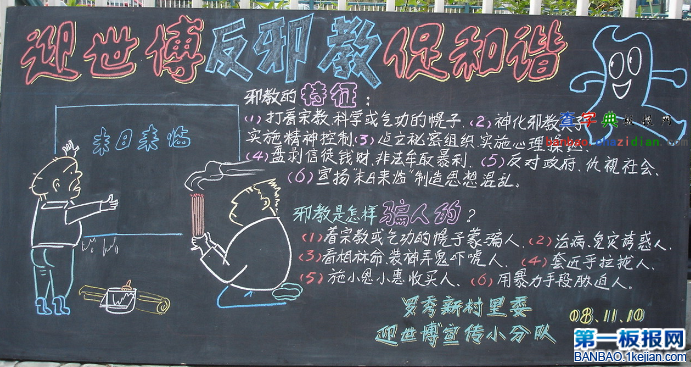 迎世博反邪教促和谐
邪教的特征：
(1)打着宗教、科学或气功的幌子.(2)神化邪教
实施精神控制.(3)建立秘密组织,实施心理
(4)盘剥信徒钱财,非法牟取暴利.(5)反对政府,仇视社会.
(6)宣扬"末日来临"制造思想混乱。
末日来临
邪教是怎样骗人的？
(1)着宗教或气功的幌子蒙骗人.(2)治病,免灾诱惑人.
(3)看相林命,装神弄鬼吓唬人.(4)套近乎拉拢人.
(5)施小恩小惠收买人.(6)用暴力手段胁迫人。
罗秀新村里委
迎世博宣传小分队
08.11.10
第一板报网
BANBAO.1kejian.com